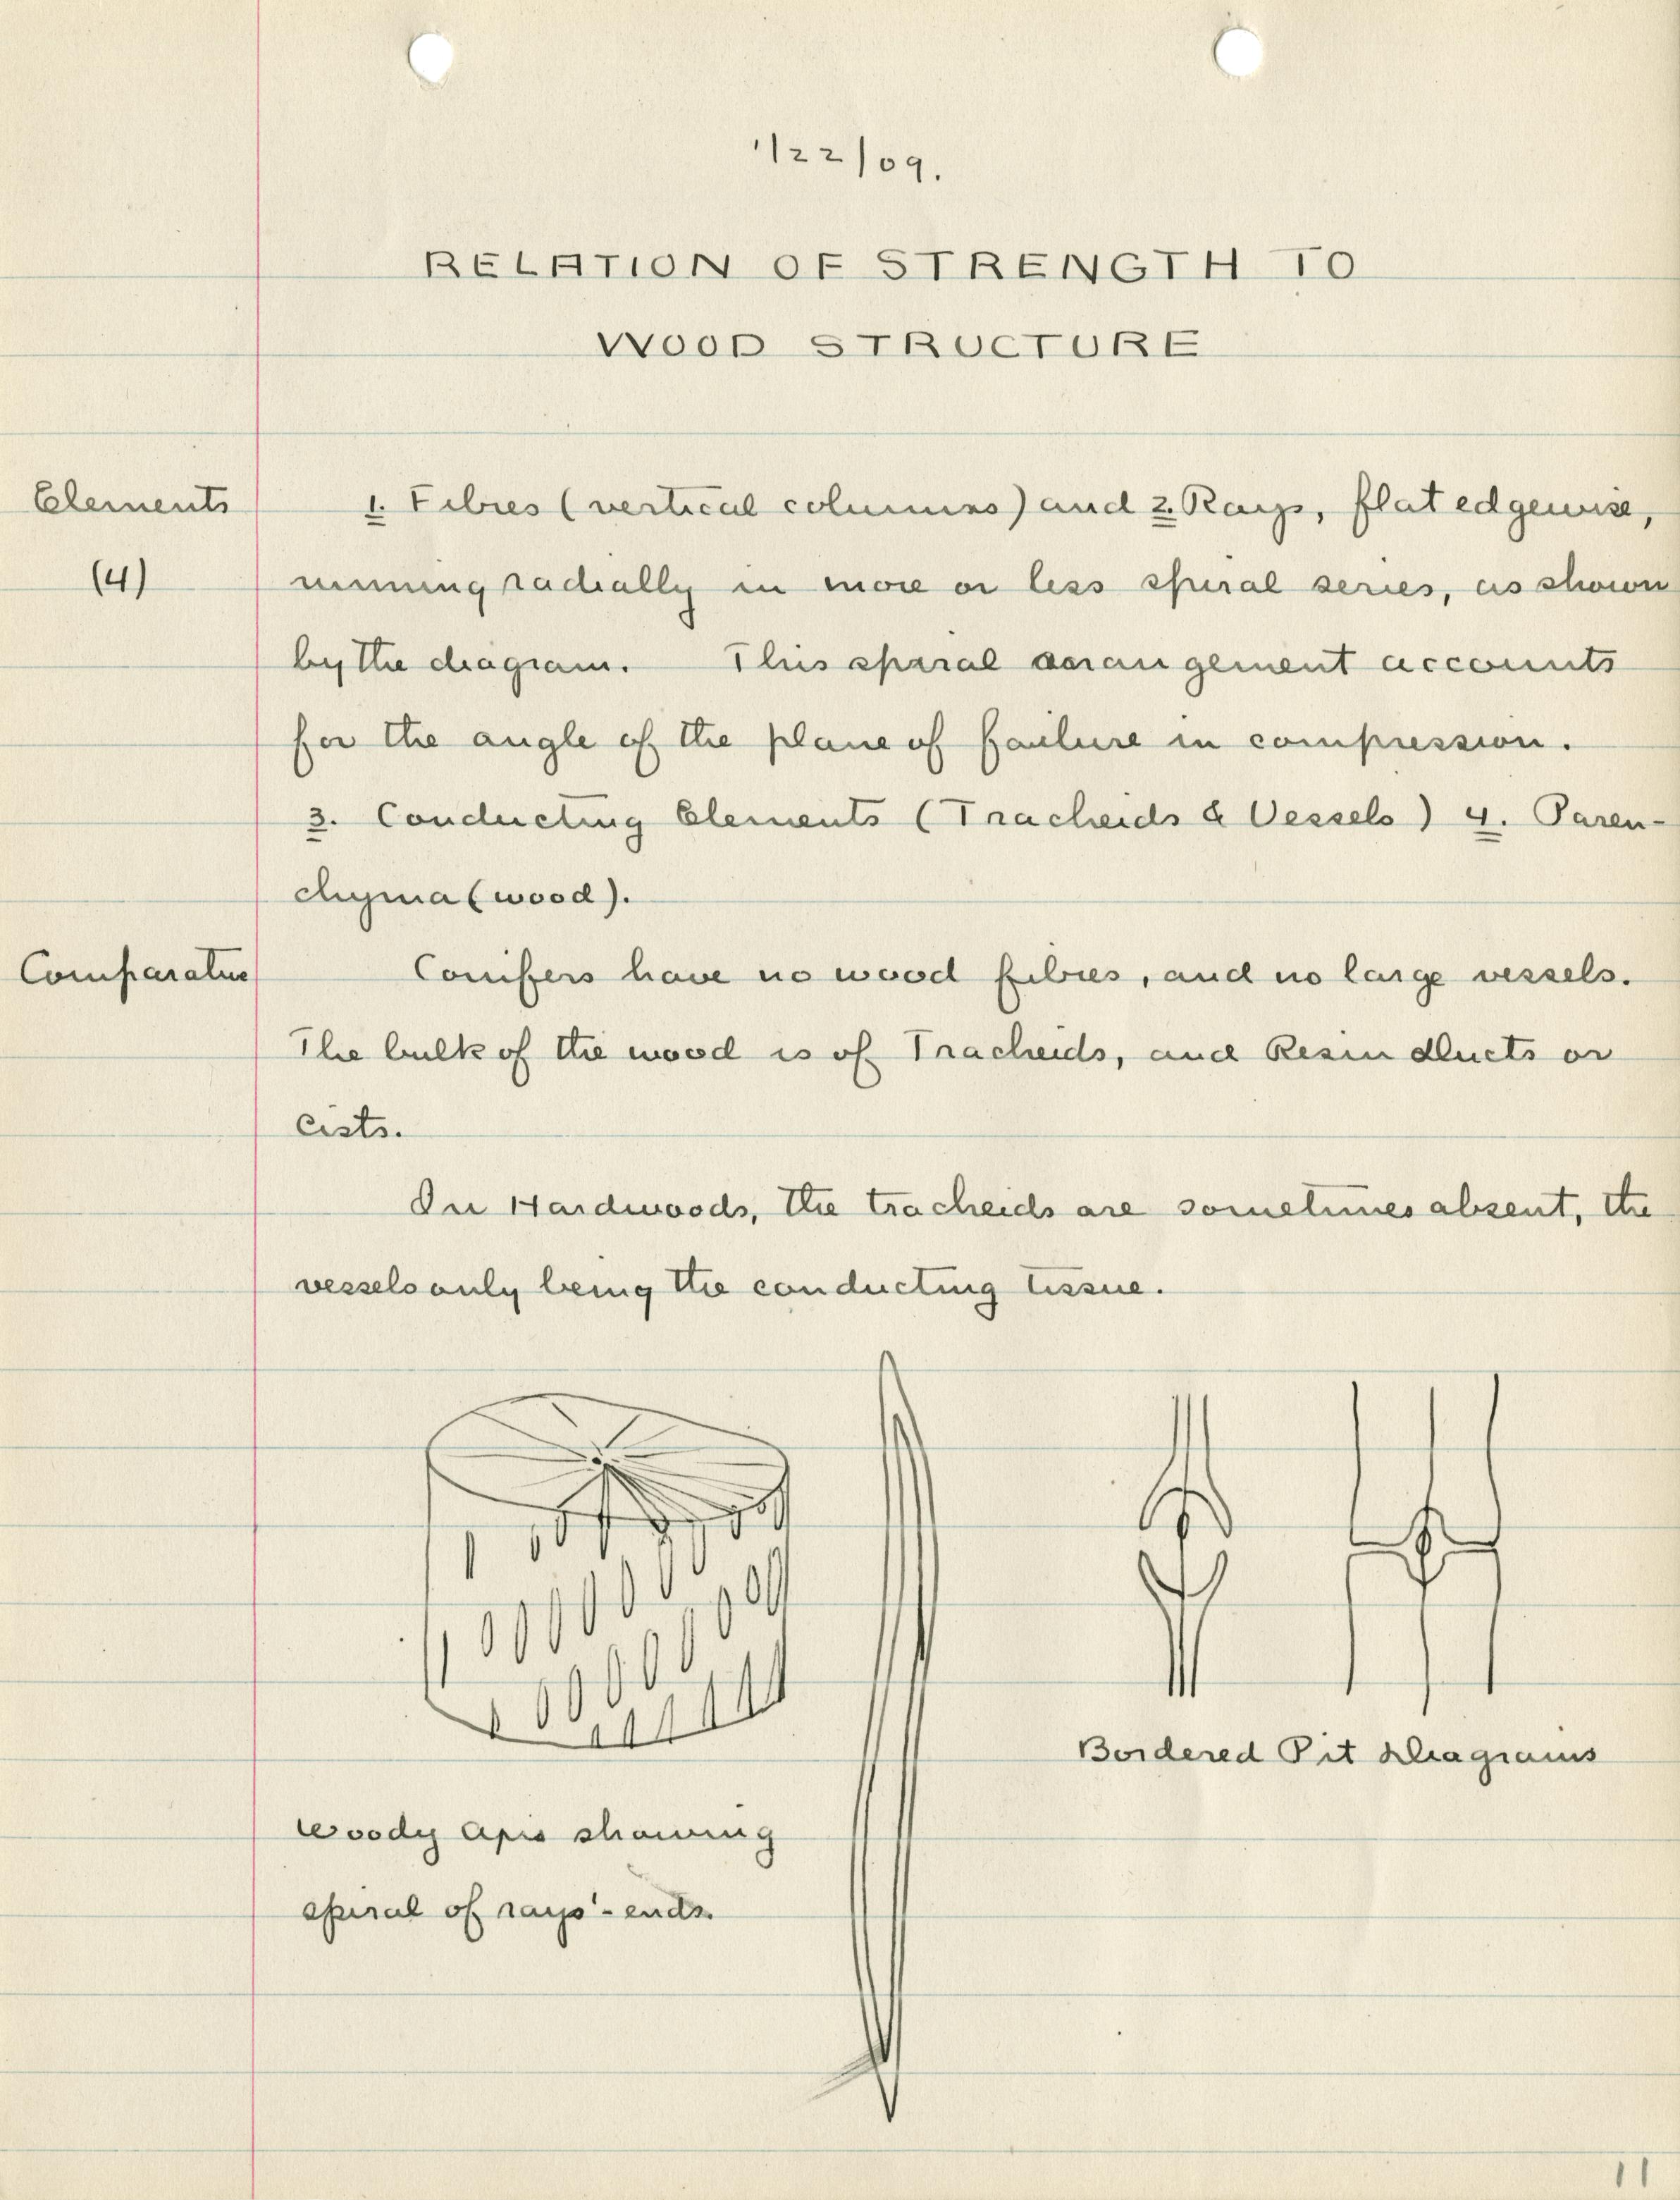 1/22/09.
RELATION OF STRENGTH TO
WOOD STRUCTURE
Elements
1. Fibres (vertical columns) and 2. Rays, flat edgewise,
(4)
running radially in more or less spiral series, as shown
by the diagram. This spiral arrangement accounts
for the angle of the plane of failure in compression.
3. Conducting Elements (Tracheids & Vessels) 4. Paren-
chyma (wood).
Comparative
Conifers have no wood fibres, and no large vessels.
The bulk of the wood is of Tracheids, and Resin ducts or
Cists.
In Hardwoods, the tracheids are sometimes absent, the
vessels only being the conducting tissue.
Bordered Pit Diagrams
Woody showing
spiral of rays'-ends.
11